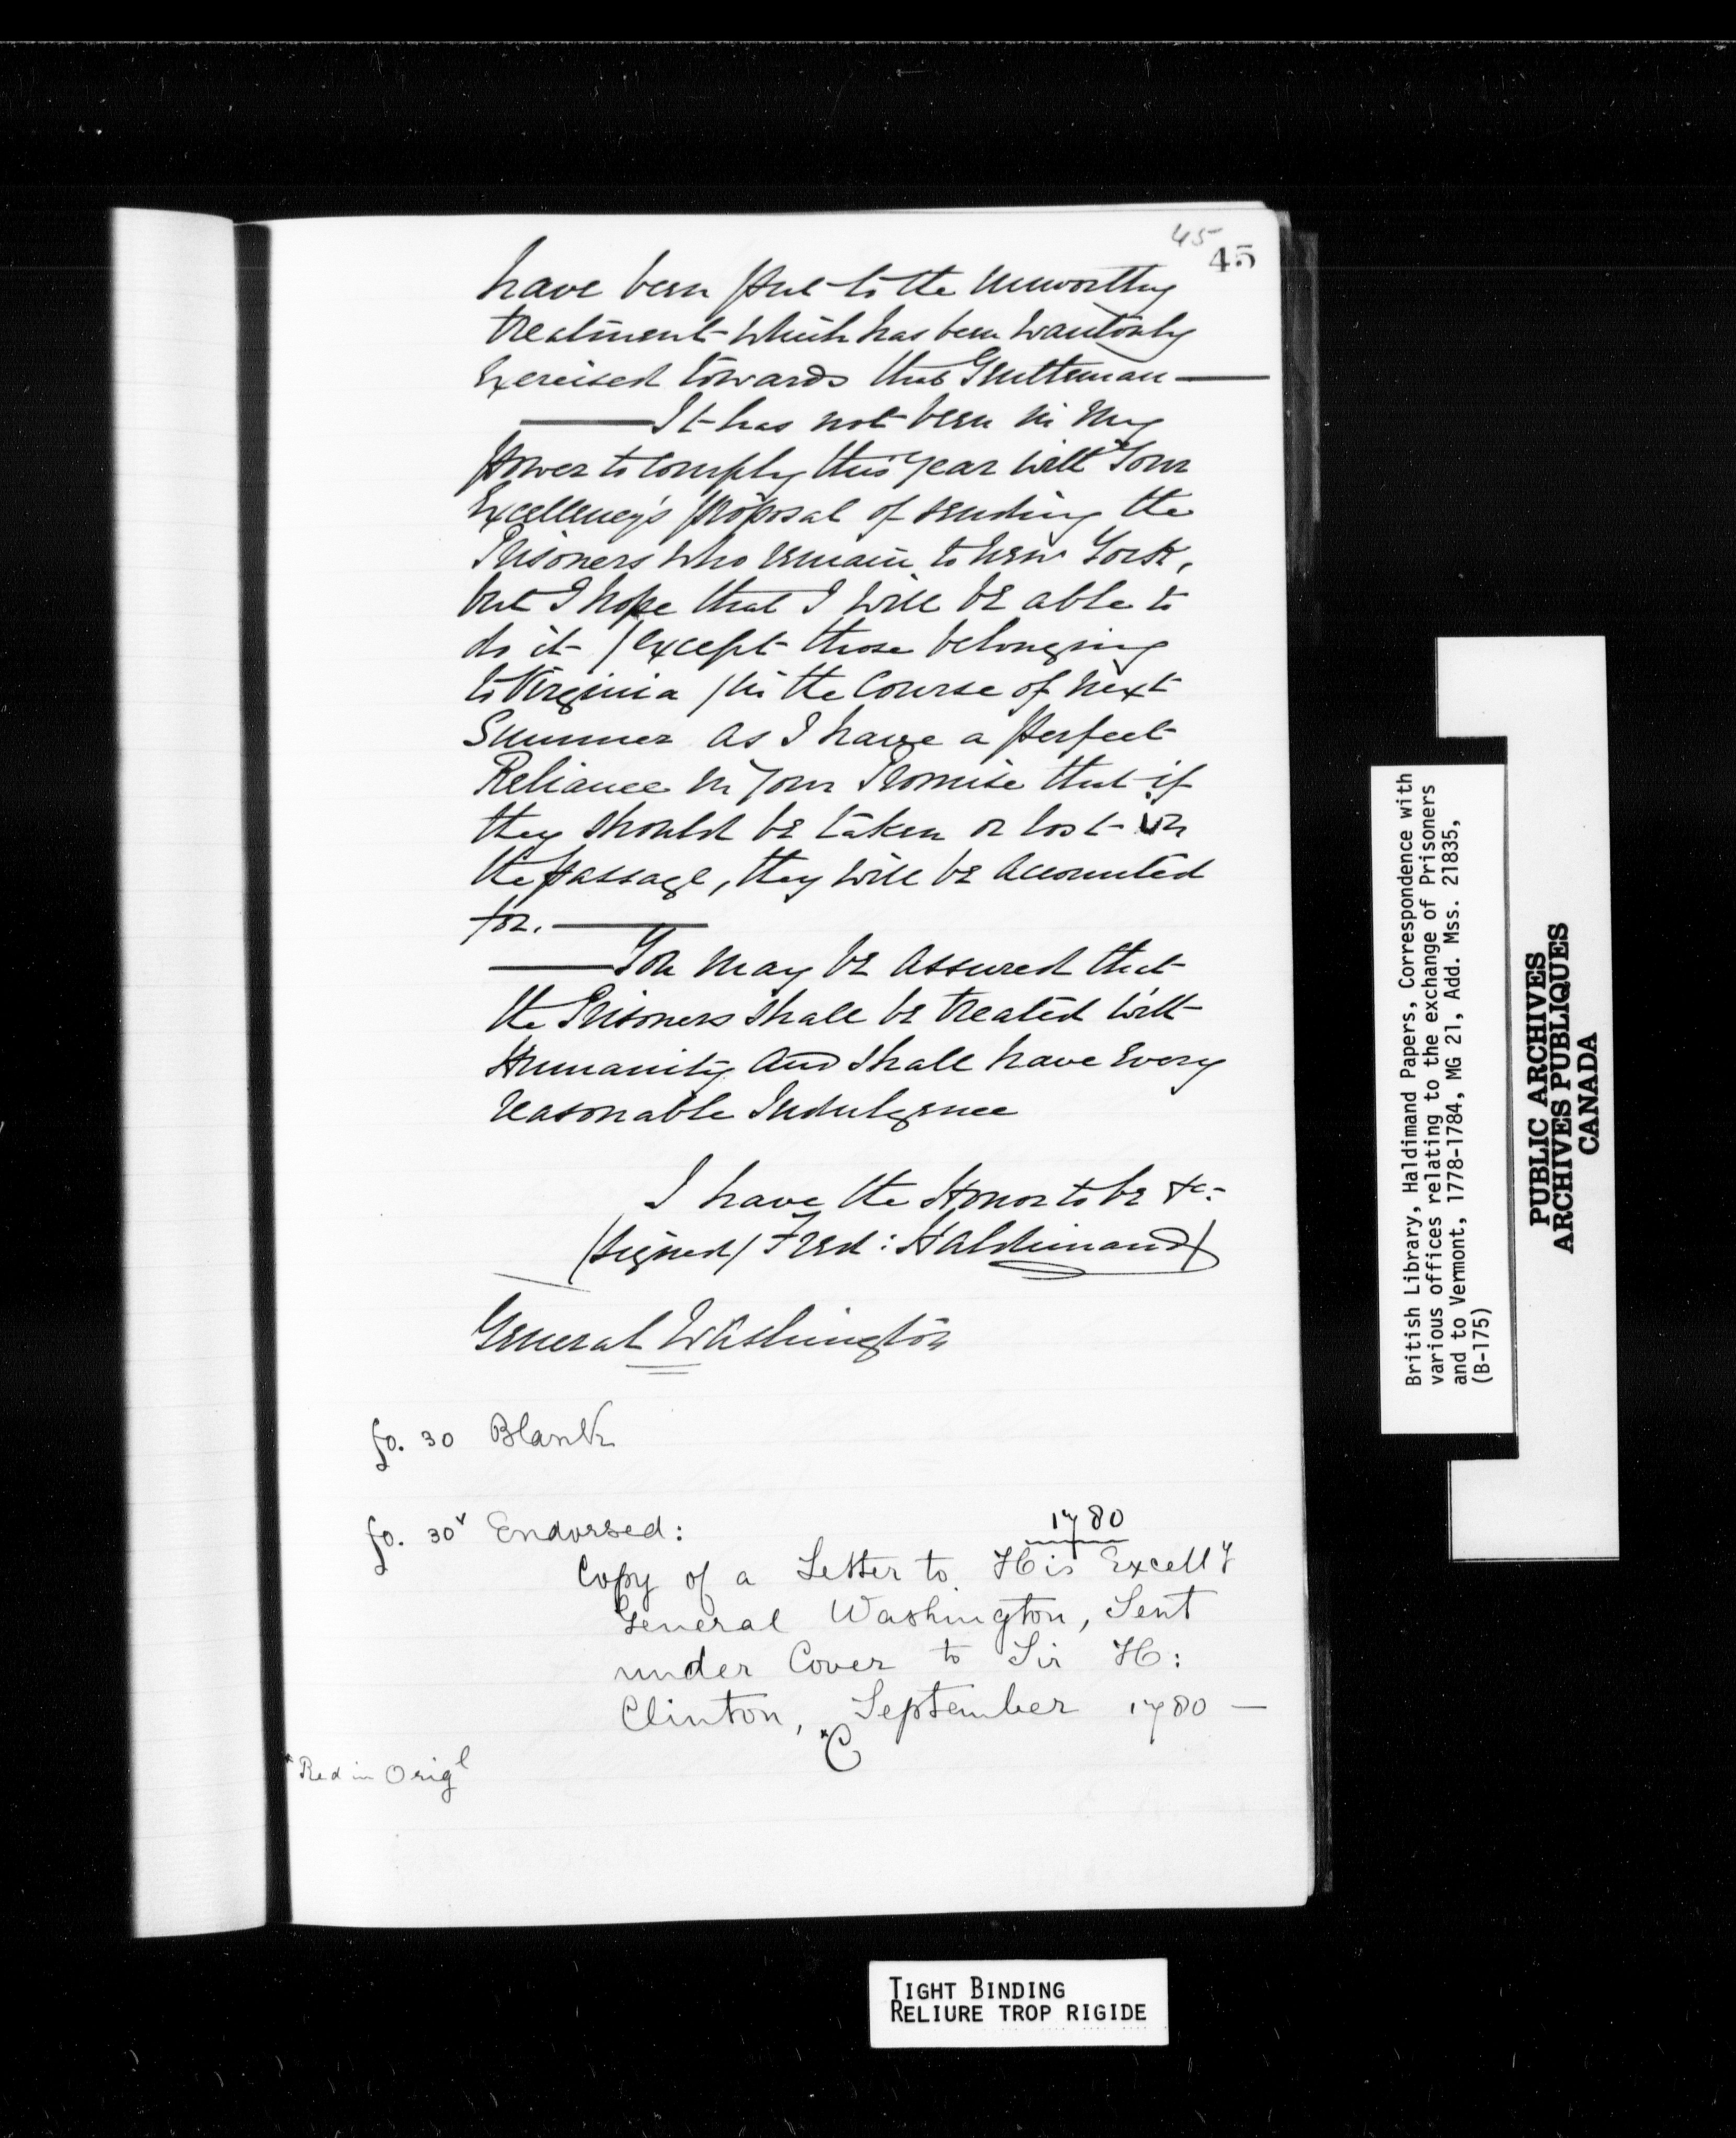 45
45
have been put to the unworthy
treatment which has been wantonly
Exercised towards that Gentleman —
— It has not been in my
power to Comply this year with Your
Excellency's proposal of sending the
Prisoners who remain to New York,
but I hope that I will be able to
do it / except those belonging
to Virginia / in the Course of next
Summer as I have a perfect
Reliance in your Promise that if
they should be taken or lost on
the passage, they will be accounted
for. —
— You may be assured that
the Prisoners shall be treated with
Humanity and shall have Every
reasonable Indulgence
I have the Honor to be &c:
(signed) Fred: Haldimand)
General Washington
fo. 30 Blank
fo. 30v Endorsed:
1780
Copy of a Letter to His Excelly
General Washington, Sent
under Cover to Sir H:
Clinton, September 1780 —
*C
*Red in Origl
British Library, Haldimand Papers, Correspondence with
various offices relating to the exchange of Prisoners
and to Vermont, 1778-1784, MG 21, Add. Mss. 21835,
(B-175)
PUBLIC ARCHIVES
ARCHIVES PUBLIQUES
CANADA
TIGHT BINDING
RELIURE TROP RIGIDE